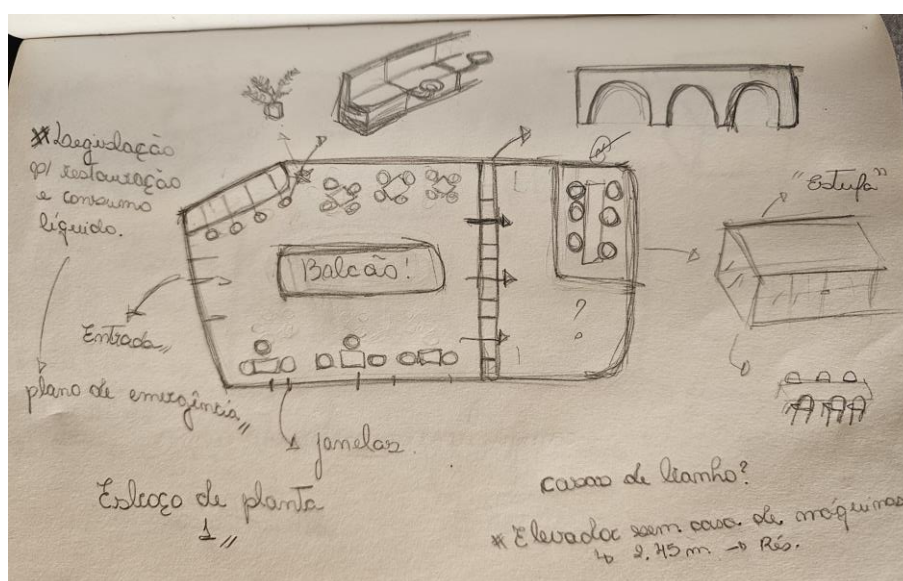 * Legislação
p/ restauração
e consumo
líquido.
"Estufa"
Balcão!
?
Entrada //
plano de emergência //
janelas.
Esboço de planta
1 //
casas de banho?
* Elevador sem casa de máquinas
↳ 2.45 m. → Rés.